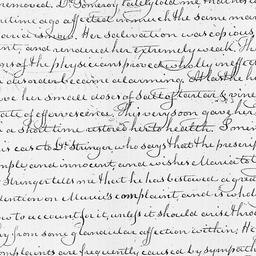 removed. Dr. Pomeroy lately told me, that his
time ago affected in much the same man
aria is now. Her salivation was copious
nt, and rendered her extremely weak. Th
ons of the physicians proved wholly ineffect
disorder became alarming. At last he
ve her small doses of salt of tartar & vine
ate of effervescence. This very soon gave her
a short time restored her to health. Pomer
is case to Dr. Stringer, who says that the prescrip
mple, and innocent, and wishes Maria to t
Stringer tells me that he has bestowed a grea
ttention on Maria's complaint, and is whol
ow to account for it, unless it should arise thro
hy from some glandular affection within. He
omplaints are frequently caused by sympath